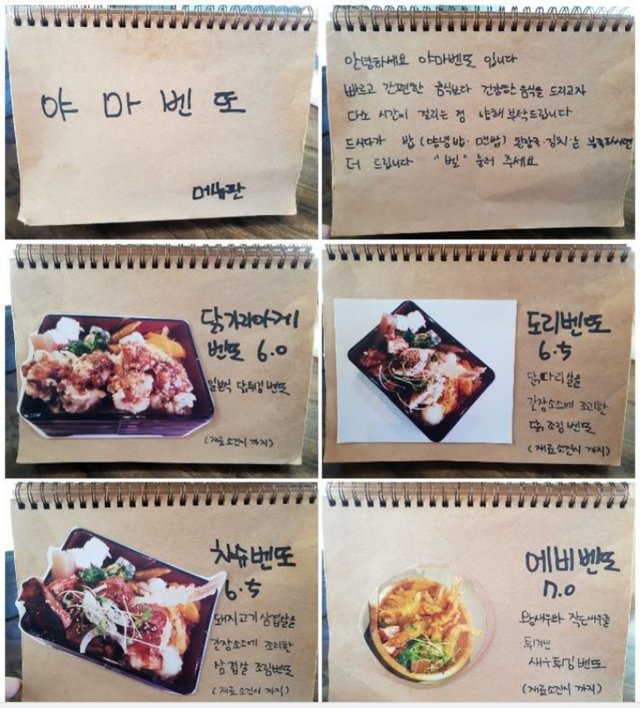 야마벤또
메뉴판
안녕하세요 야마벤또 입니다
빠르고 간편한 음식보다 건강한 음식을 드리고자
다소 시간이 걸리는 점 양해 부탁드립니다
드시다가 밥(양념밥·맨밥) 된장국·김치·눈 부족하시면
더 드립니다 "벨" 눌러 주세요
닭가라아게
벤또 6.0
일본식 닭튀김 벤또
(재료소진시 까지)
도리벤또
6.5
닭다리살을
간장소스에 조리한
닭조림 벤또
(재료소진시 까지)
차슈벤또
6.5
돼지고기 삼겹살을
간장소스에 조리한
삼겹살 조림벤또
(재료소진시 까지)
에비벤또
7.0
왕새우와 작은새우를
튀겨낸
새우튀김 벤또
(재료소진시 까지)